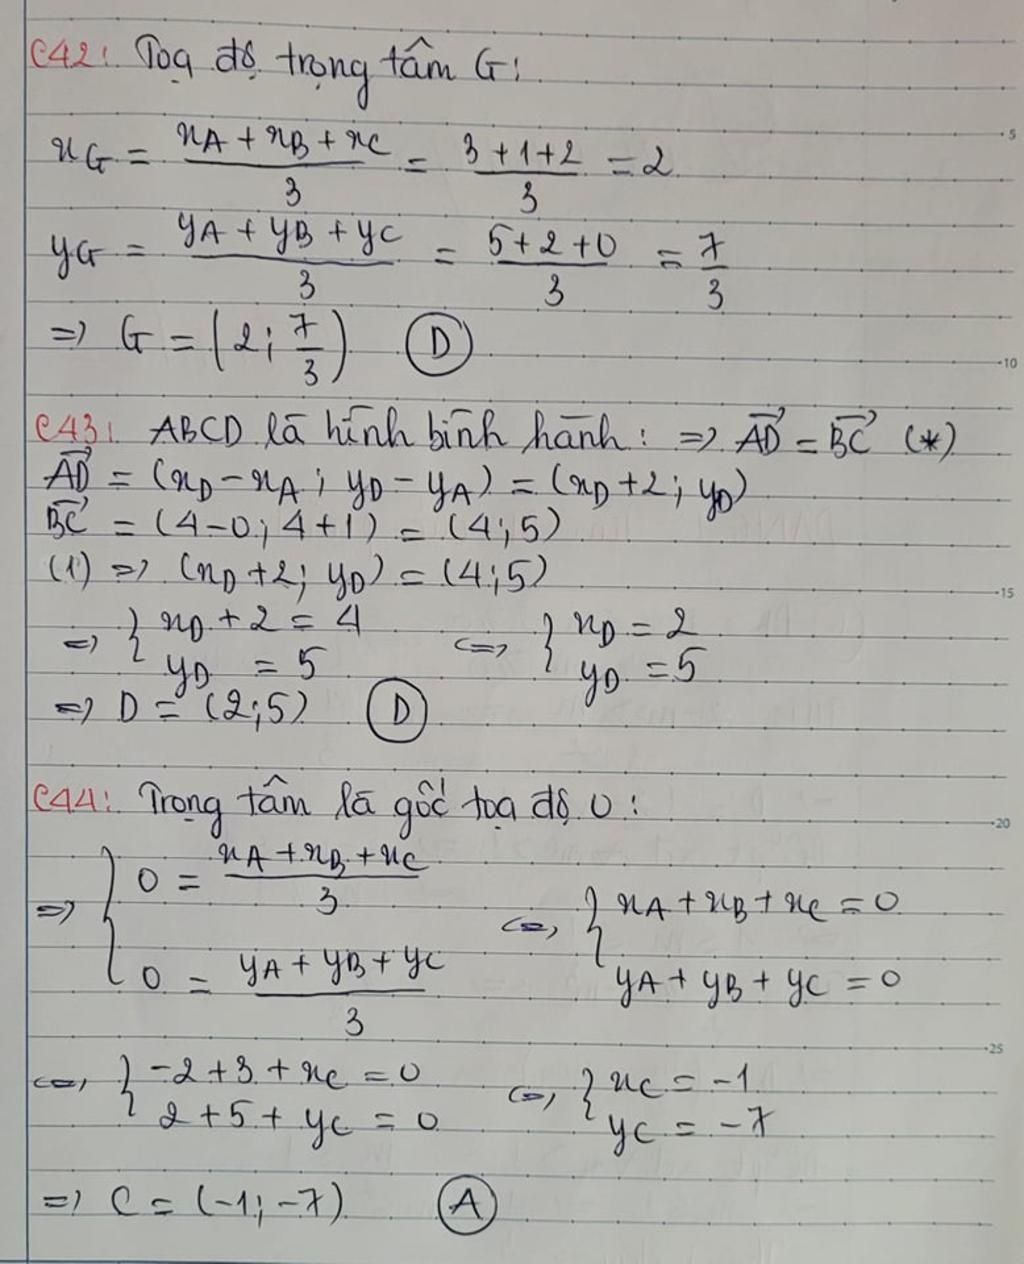 C42: Toạ độ trọng tâm G:
xG = (xA + xB + xC)/3 = (3 + 1 + 2)/3 = 2
yG = (yA + yB + yC)/3 = (5 + 2 + 0)/3 = 7/3
=> G = (2; 7/3) D
C43: ABCD là hình bình hành: => AD→ = BC→ (*)
AD→ = (xD - xA; yD - yA) = (xD + 2; yD)
BC→ = (4 - 0; 4 + 1) = (4; 5)
(1) => (xD + 2; yD) = (4; 5)
=> { xD + 2 = 4 <=> { xD = 2
yD = 5 yD = 5
=> D = (2; 5) D
C44: Trọng tâm là gốc toạ độ O:
=> { 0 = (xA + xB + xC)/3 <=> { xA + xB + xC = 0
0 = (yA + yB + yC)/3 yA + yB + yC = 0
<=> { -2 + 3 + xC = 0 <=> { xC = -1
2 + 5 + yC = 0 yC = -7
=> C = (-1; -7) A
5
10
15
20
25